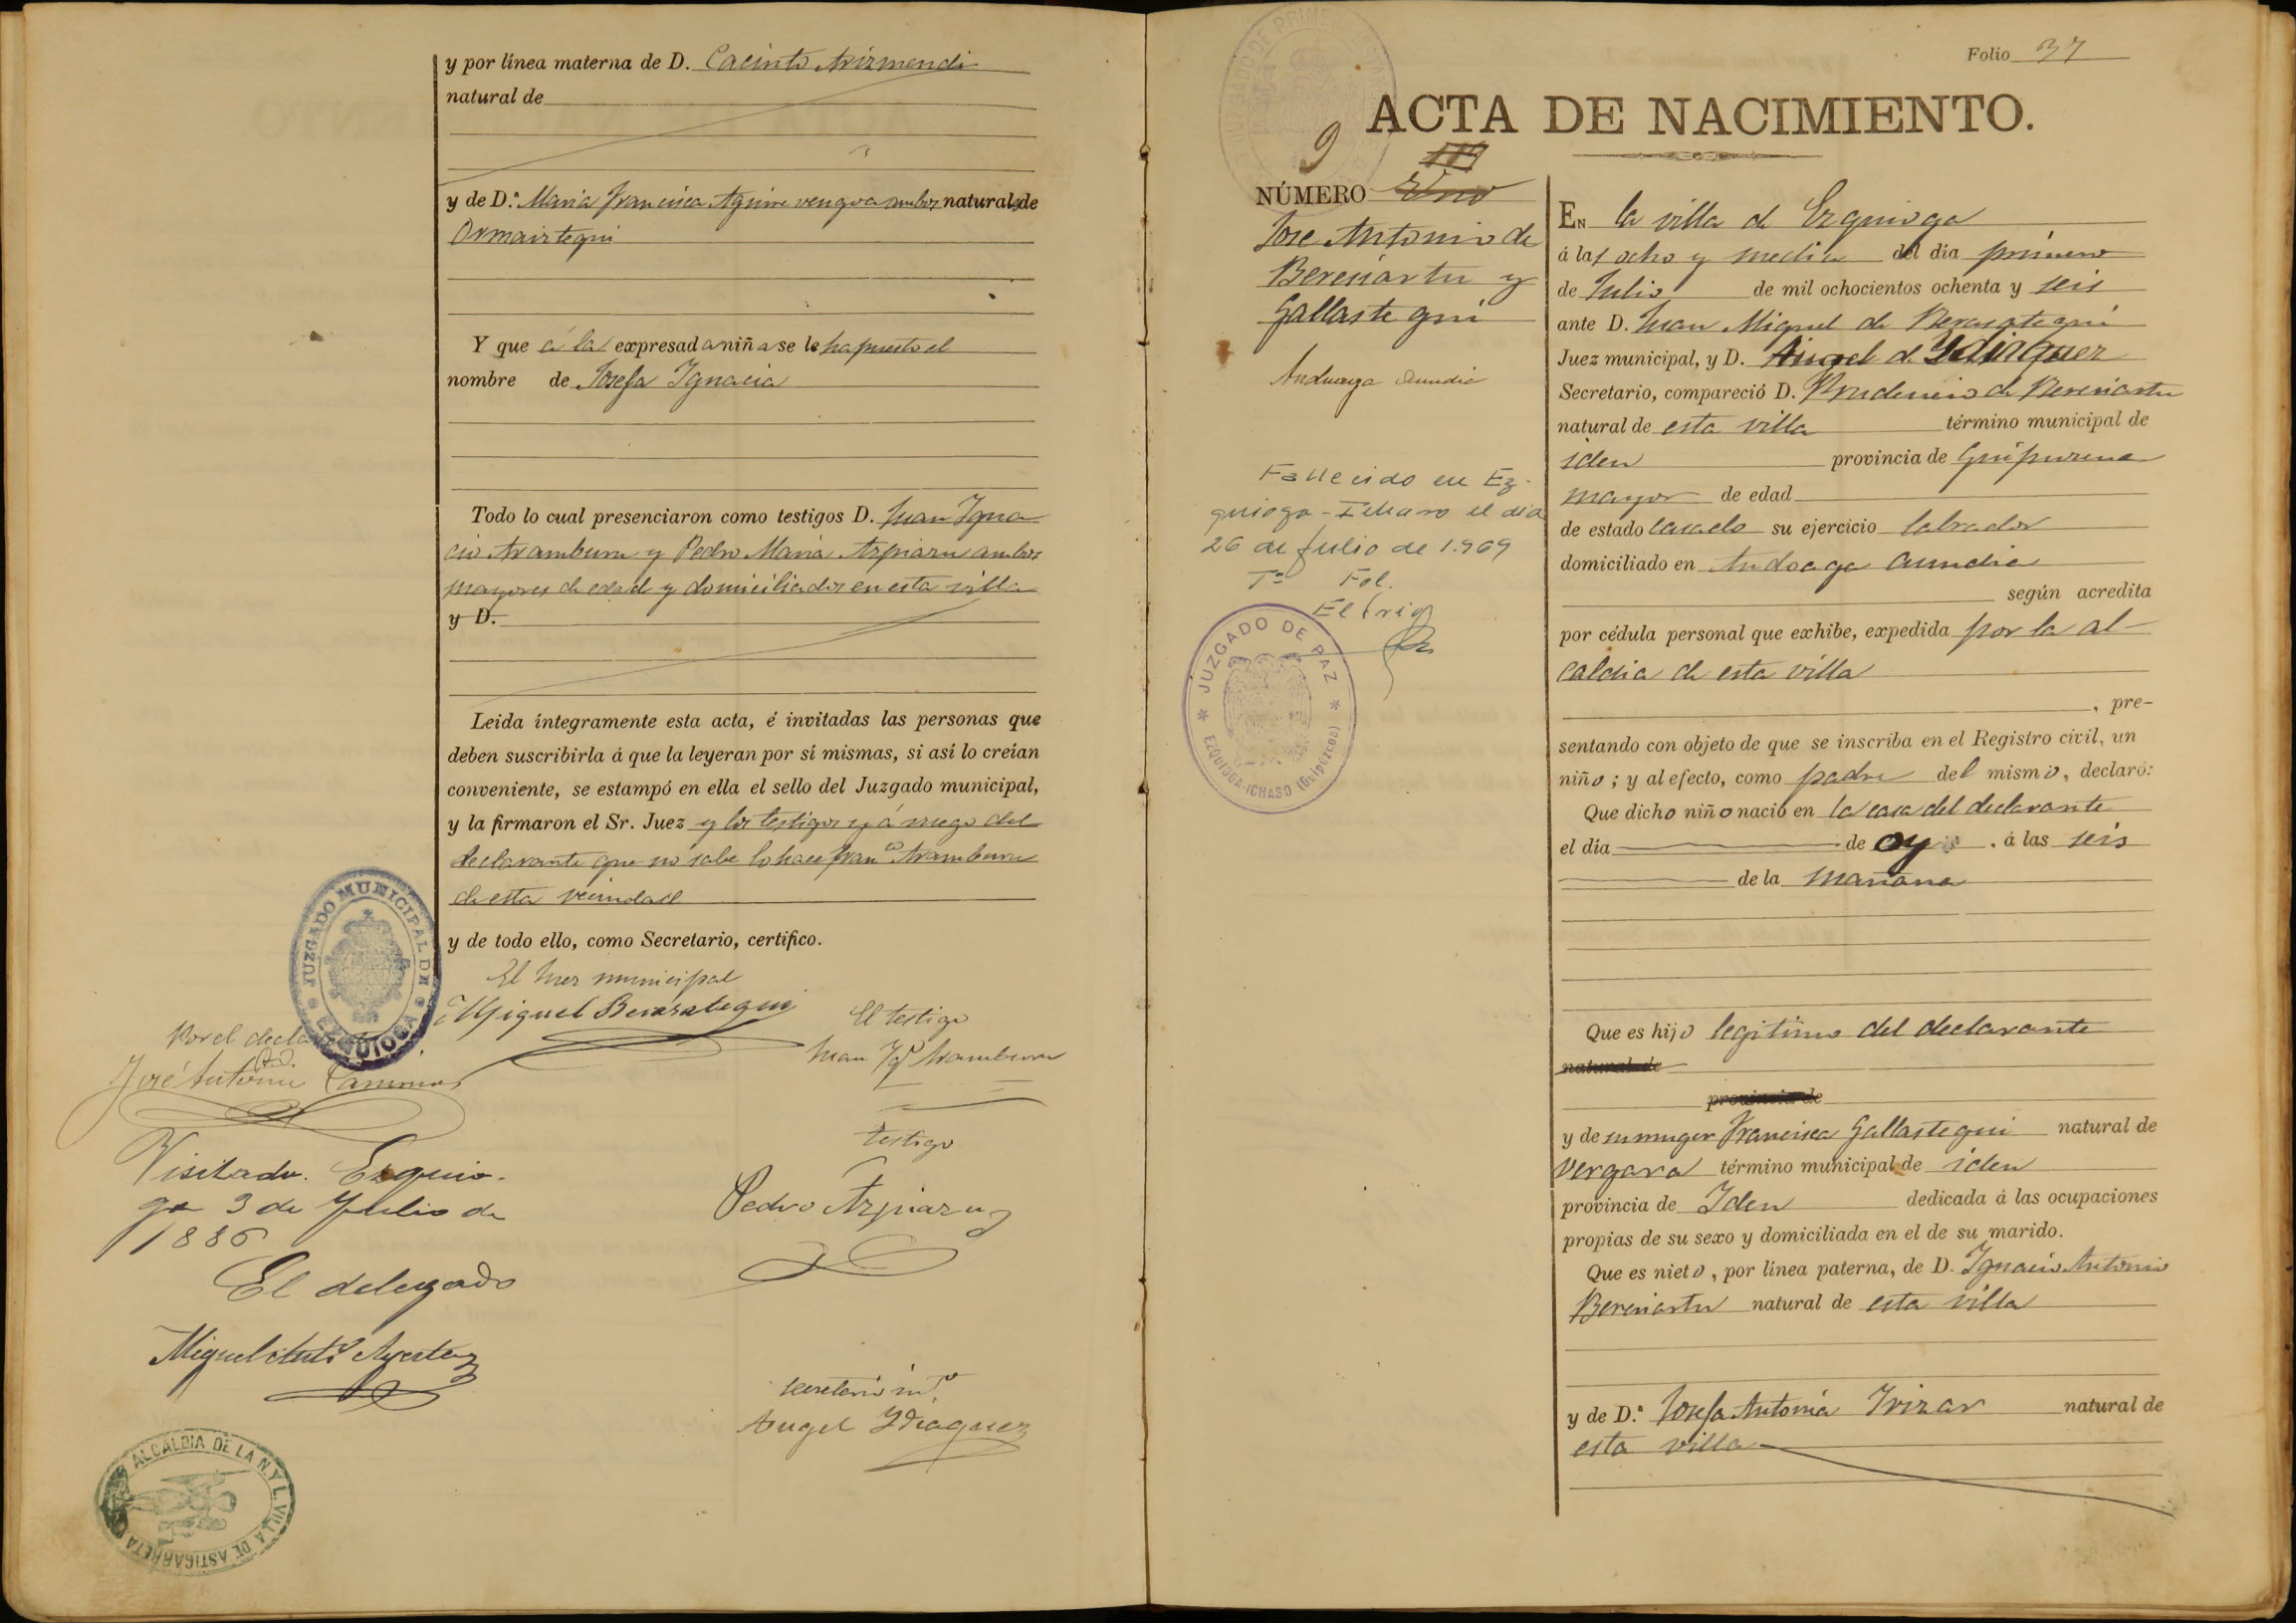 y por línea materna de D. Cacinto Arizmendi
natural de
y de D.ª Maria Francisca Aguirrevengoa ambos naturales de
Ormaiztegui
Y que á la expresada niña se le ha puesto el
nombre de Josefa Ignacia
Todo lo cual presenciaron como testigos D. Juan Igna
cio Aramburu y Pedro Maria Azpiazu ambos
mayores de edad y domiciliados en esta villa
y D.
Leida íntegramente esta acta, é invitadas las personas que
deben suscribirla á que la leyeran por sí mismas, si así lo creían
conveniente, se estampó en ella el sello del Juzgado municipal,
y la firmaron el Sr. Juez y los testigos y á ruego del
declarante que no sabe lo hace Fran.co Aramburu
de esta vecindad
y de todo ello, como Secretario, certifico.
El Juez municipal
Miguel Berasategui
JUZGADO MUNICIPAL DE
EZQUIOGA
El testigo
Juan Ig.º Aramburu
Por el decla
José Antonio
testigo
Pedro Azpiazu
Visitado. Ezquio-
ga 3 de Julio de
1886
El delegado
Miguel Ant.º
Secretario int.º
Angel Ydiaquez
ALCALDIA DE LA N. Y L. VILLA DE ASTIGARRETA
Folio 37
ACTA DE NACIMIENTO.
9
NÚMERO Uno
Jose Antonio de
Bereciartu y
Gallastegui
Anduaga aundia
Fallecido en Ez-
quioga-Ichaso el día
26 de julio de 1.969
Tº Fol.
JUZGADO DE PAZ
EZQUIOGA-ICHASO (Guipúzcoa)
EN la villa de Ezquioga
á las ocho y media del día primero
de Julio de mil ochocientos ochenta y seis
ante D. Juan Miguel de Berasategui
Juez municipal, y D. Angel de Ydiaquez
Secretario, compareció D. Prudencio de Bereciartu
natural de esta villa término municipal de
iden provincia de Guipuzcoa
mayor de edad
de estado casado su ejercicio labrador
domiciliado en Andoaga aundia
según acredita
por cédula personal que exhibe, expedida por la al-
caldia de esta villa
, pre-
sentando con objeto de que se inscriba en el Registro civil, un
niño; y al efecto, como padre del mismo, declaró:
Que dicho niño nació en la casa del declarante
el día de oy á las seis
de la mañana
Que es hijo legitimo del declarante
natural de
provincia de
y de su muger Francisca Gallastegui natural de
Vergara término municipal de iden
provincia de Iden dedicada á las ocupaciones
propias de su sexo y domiciliada en el de su marido.
Que es nieto, por línea paterna, de D. Ignacio Antonio
Bereciartu natural de esta villa
y de D.ª Josefa Antonia Irizar natural de
esta villa